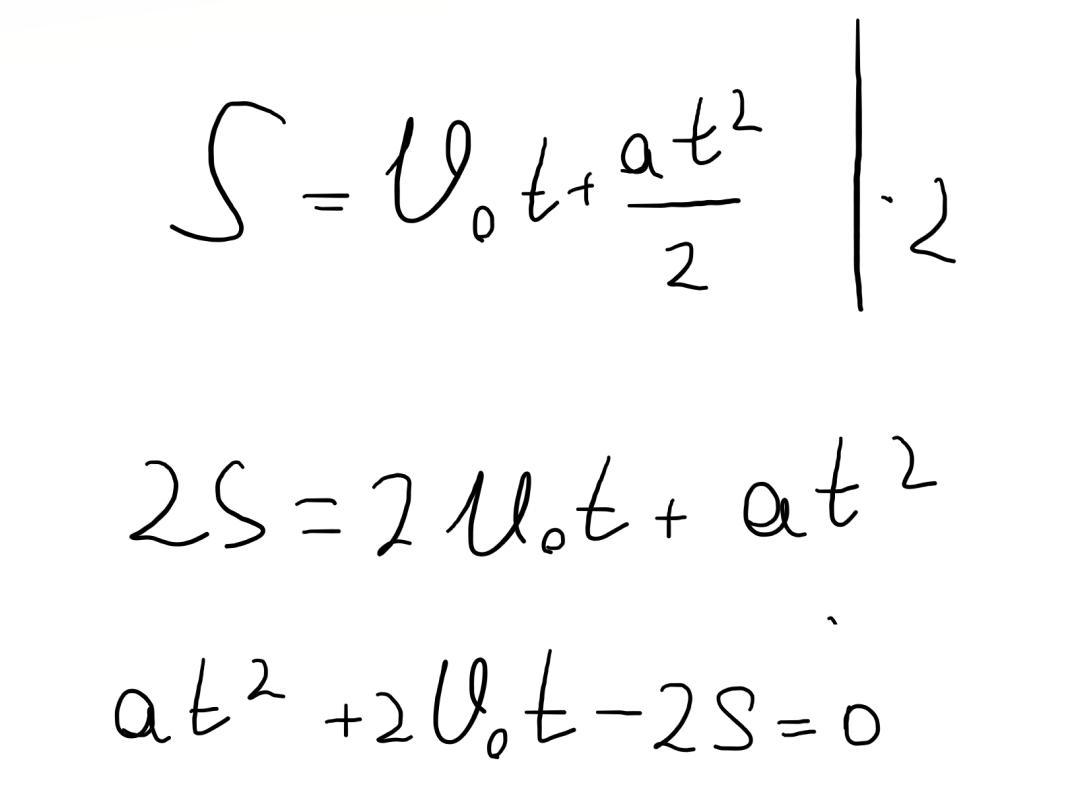 S = υ₀t + at²/2 | · 2
2S = 2υ₀t + at²
at² + 2υ₀t − 2S = 0